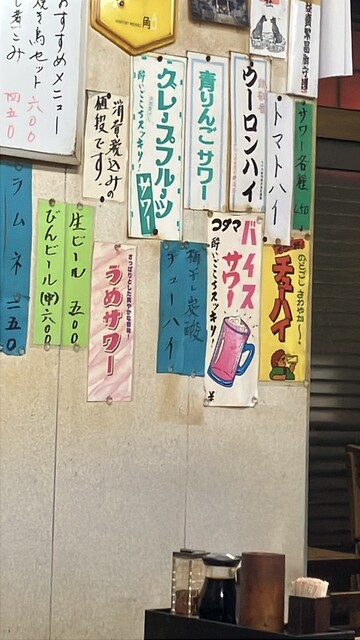 おすすめメニュー
焼き鳥セット 六〇〇
煮こみ 四五〇
角
消費税込みの
値段です!
グレープフルーツ
サワー
酔いごこちスッキリ!
青りんごサワー
ウーロンハイ
トマトハイ
サワー各種 450
ラムネ 二五〇
びんビール(中)六〇〇
生ビール 五〇〇
さっぱりとした爽やかな香味!
うめサワー
梅干し炭酸
チューハイ
コダマ
バイスサワー
酔いごこちスッキリ!
¥
のどごしさわやか〜
チューハイ